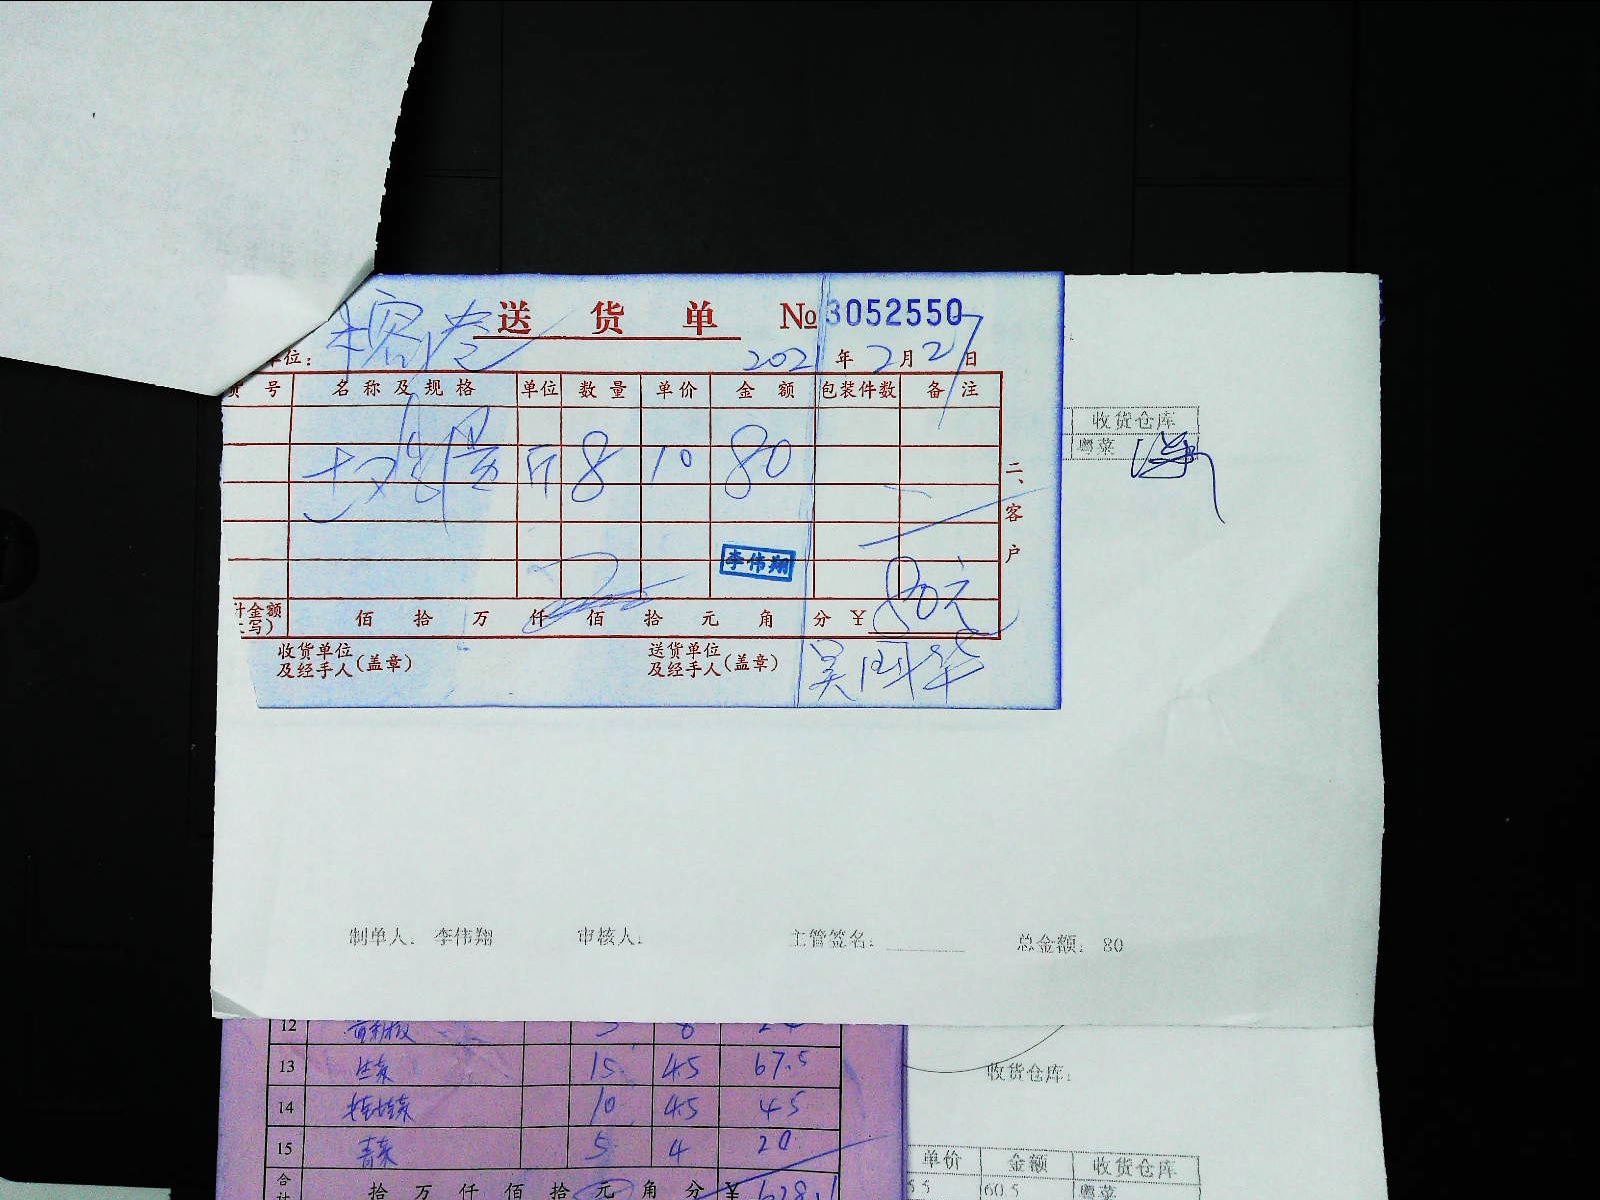 送 货 单 № 3052550
位： 2021 年 2 月 27 日
号 名称及规格 单位 数量 单价 金额 包装件数 备注
斤 8 10 80
李伟翔
计金额 佰 拾 万 仟 佰 拾 元 角 分 ￥ 80元
写)
收货单位
及经手人(盖章)
送货单位
及经手人(盖章)
吴国华
二、客户
收货仓库
粤菜
制单人： 李伟翔 审核人： 主管签名： 总金额： 80
12 8
13 生菜 15 4.5 67.5
14 10 4.5 45
15 青菜 5 4 20
合计 拾 万 仟 佰 拾 元 角 分 ￥ 628.1
收货仓库：
单价 金额 收货仓库
5.5 60.5 粤菜